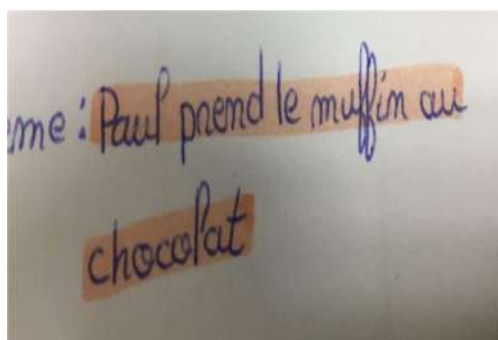 eme : Paul prend le muffin au
chocolat